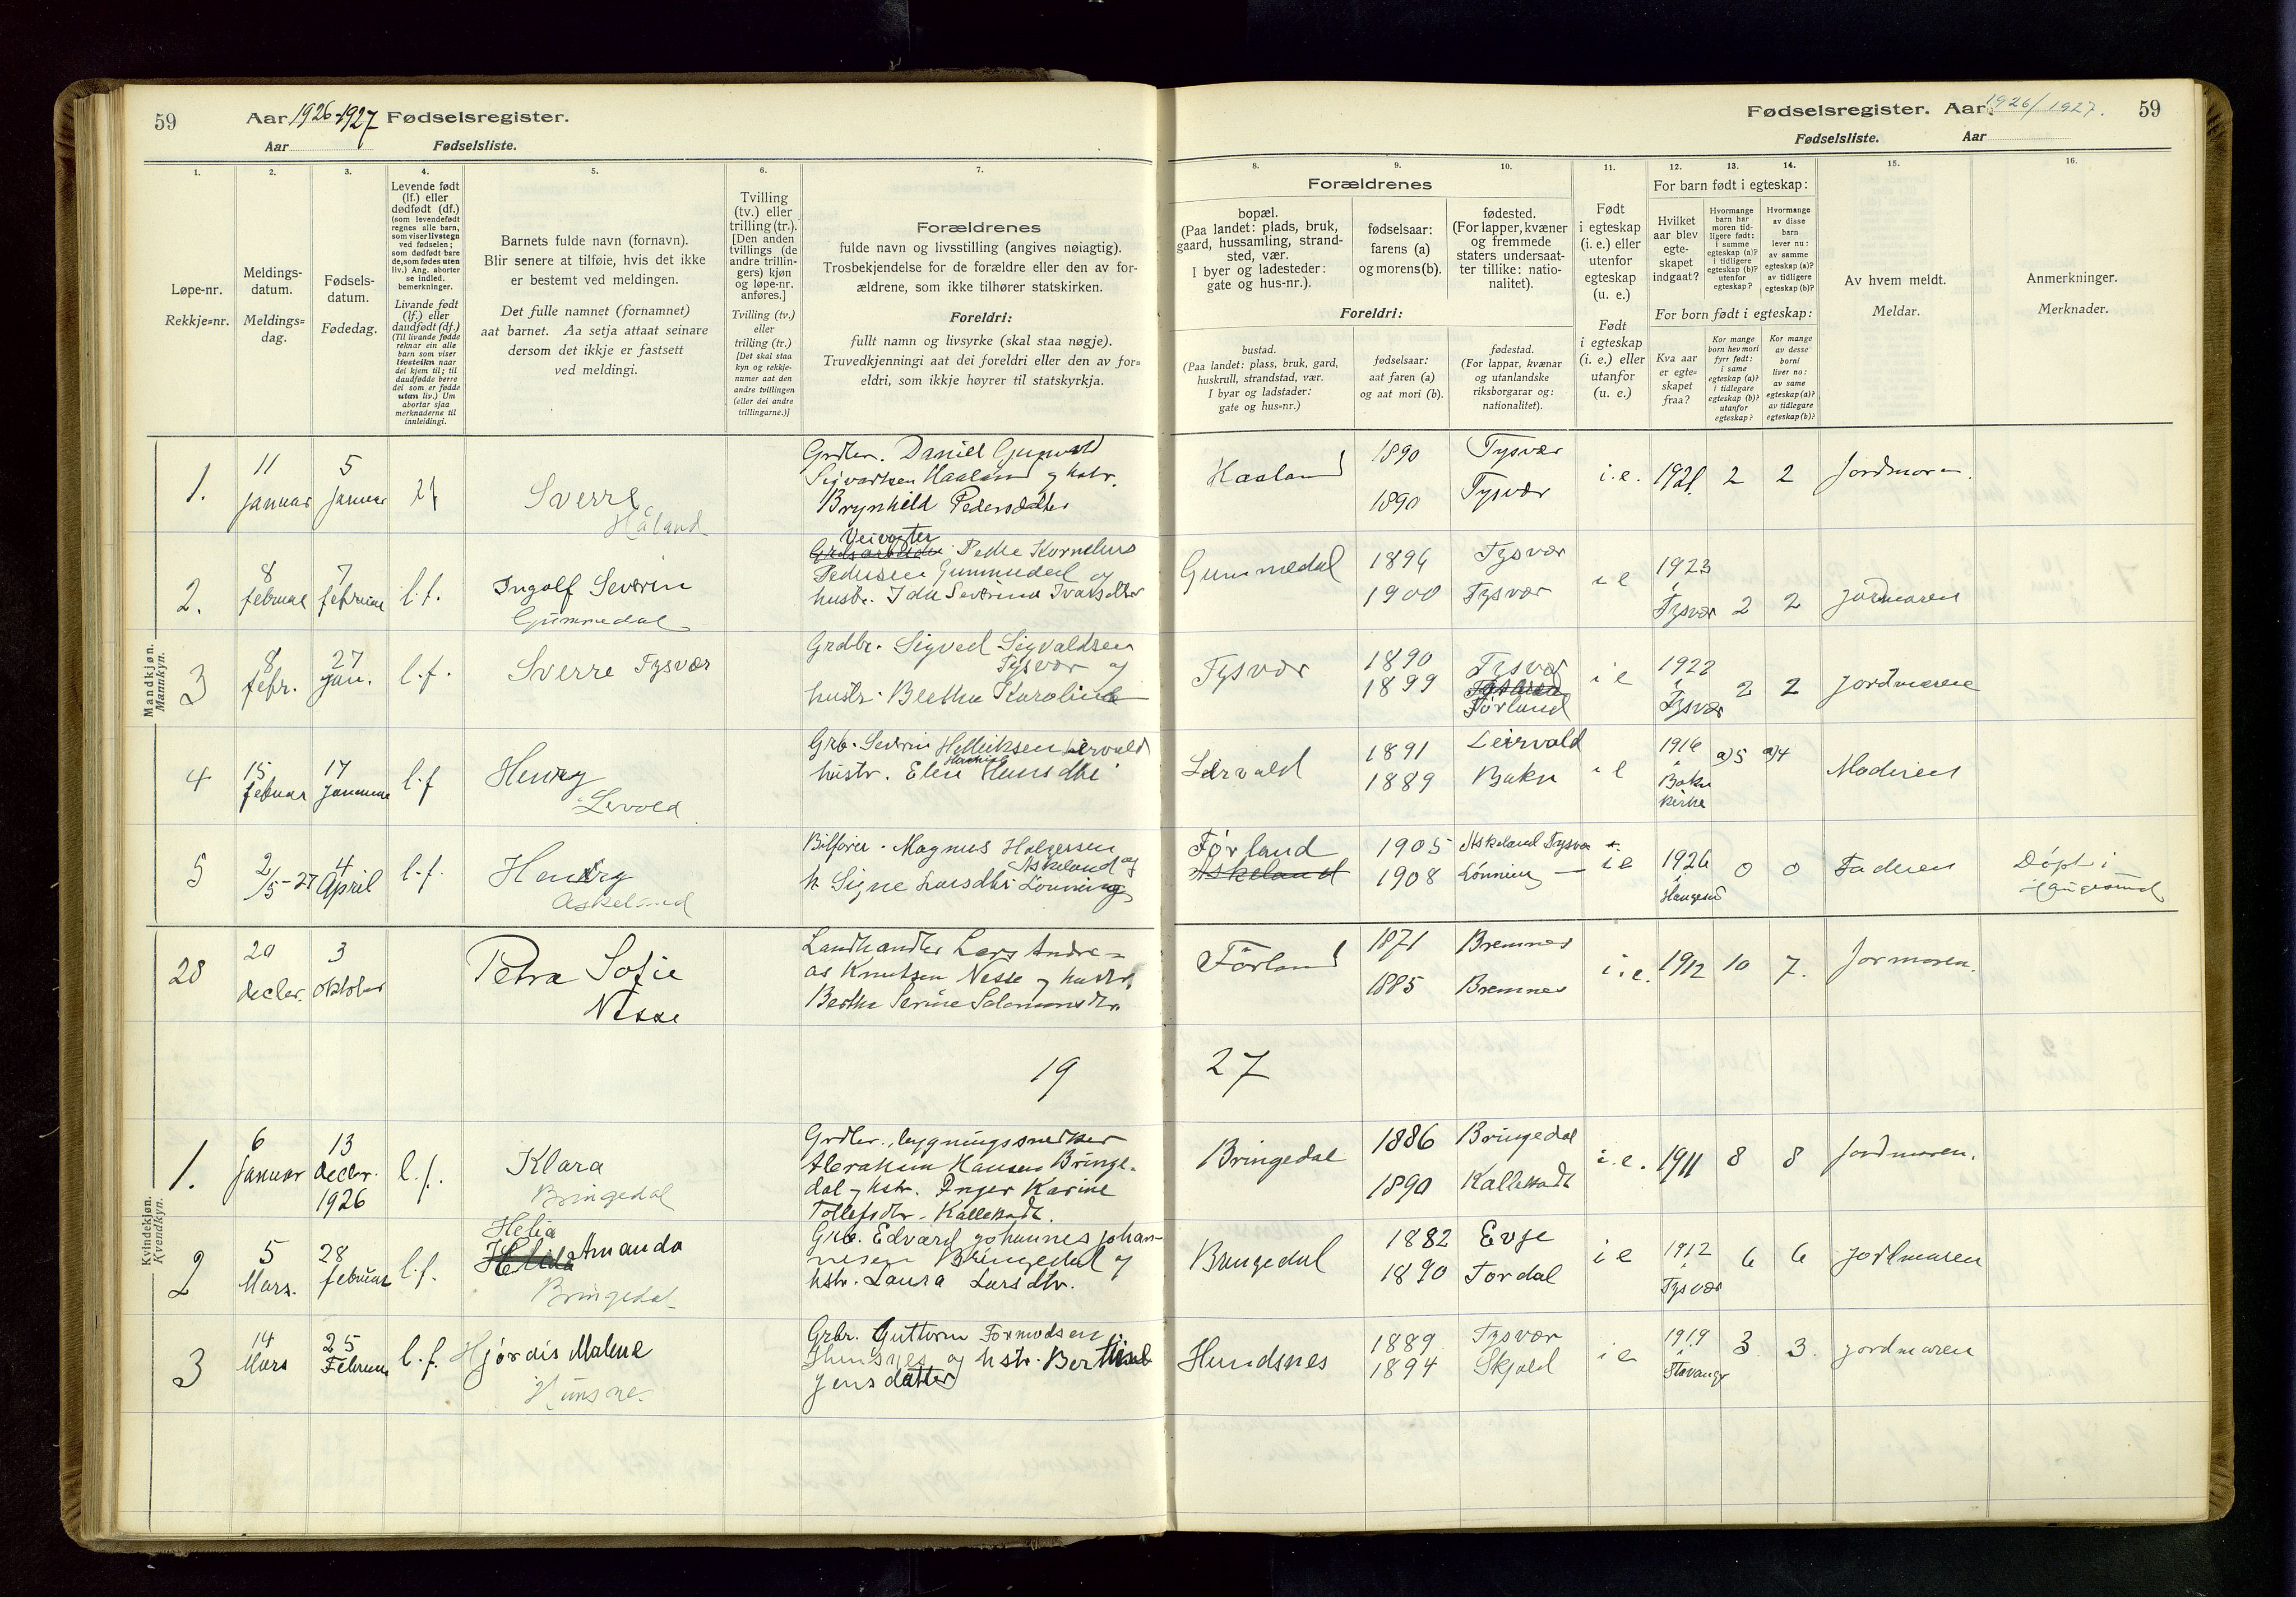 59 Aar 1926-1927 Fødselsregister.
Aar Fødselsliste.
1. 2. 3. 4. 5. 6. 7.
Løpe-nr.
Rekkje-nr.
Meldings-
datum.
Meldings-
dag.
Fødsels-
datum.
Fødedag.
Levende født
(lf.) eller
dødfødt (df.)
(som levendefødt
regnes alle barn,
som viser livstegn
ved fødselen;
som dødfødt bare
de, som fødes uten
liv.) Ang. aborter
se indled.
bemerkninger.
Livande født
(lf.) eller
daudfødt (df.)
(Til livande fødde
reknar ein alle
barn som viser
livsteikn naar
dei kjem til; til
daudfødde berre
dei som er fødde
utan liv.) Um
abortar sjaa
merknaderne til
innleidingi.
Barnets fulde navn (fornavn).
Blir senere at tilføie, hvis det ikke
er bestemt ved meldingen.
Det fulle namnet (fornamnet)
aat barnet. Aa setja attaat seinare
dersom det ikkje er fastsett
ved meldingi.
Tvilling
(tv.) eller
trilling (tr.).
[Den anden
tvillings (de
andre trillin-
gers) kjøn
og løpe-nr.
anføres.]
Tvilling (tv.)
eller
trilling (tr.)
[Det skal staa
kyn og rekkje-
numer aat den
andre tvillingen
(eller dei andre
trillingarne.)]
Forældrenes
fulde navn og livsstilling (angives nøiagtig).
Trosbekjendelse for de forældre eller den av for-
ældrene, som ikke tilhører statskirken.
Foreldri:
fullt namn og livsyrke (skal staa nøgje).
Truvedkjenningi aat dei foreldri eller den av for-
eldri, som ikkje høyrer til statskyrkja.
Mandkjøn.
Mannkyn.
1. 11 januar 5 januar Sverre
Håland
Daniel Gunvald
Sigvartsen Haaland og hstr.
Brynhild Pedersdatter
2. 8 februar 7 februar l.f. Ingolf Severin
Gummedal
Veivogter
Peder Kornelius
Pedersen Gummedal og
hustr. Ida Severine
3 8 febr. 27 Jan. l.f. Sverre Tysvær
Grdbr. Sigved Sigvaldsen
Tysvær og
hustr. Karoline
4 15 februar 17 Januar l.f Henry
Levold
Grb. Severin
hustr. Elen Hansdtr
5 2/5-27 4 April l.f. Henry
Askeland
Magnus Holgersen
Askeland og
h. Signe Larsdtr Lønning
28 20 decbr. 3 oktober Petra Sofie
Nesse
Landhandler Lars Andre-
as Knutsen Nesse og hustr.
Berthe Serine Salomonsdtr.
19
Kvindekjøn.
Kvendkyn.
1. 6 januar 13 decbr. 1926 l.f. Klara
Bringedal
bygningssnedker
Abraham Hansen Bringe-
dal og hstr. Inger Karine
Tollefsdtr. Kallekodt.
2 5 Mars. 28 februar l.f. Helia
Amanda
Bringedal
Grb. Edvard Johannes Johan-
nesen Bringedal og
hstr. Laura Larsdtr.
3 14 Mars 25 Februar l.f. Hjørdis Malene
Hunsnes
Grbr. Guttorm Tormodsen
og hstr.
Jensdatter
Fødselsregister. Aar 1926/1927. 59
Fødselsliste. Aar
8. 9. 10. 11. 12. 13. 14. 15. 16.
Forældrenes
bopæl.
(Paa landet: plads, bruk,
gaard, hussamling, strand-
sted, vær.
I byer og ladesteder:
gate og hus-nr.).
fødselsaar:
farens (a)
og morens (b).
fødested.
(For lapper, kvæner
og fremmede
staters undersaat-
ter tillike: natio-
nalitet).
Foreldri:
bustad.
(Paa landet: plass, bruk, gard,
huskrull, strandstad, vær.
I byar og ladstader:
gate og hus-nr.)
fødselsaar:
aat faren (a)
og aat mori (b).
fødestad.
(For lappar, kvænar
og utanlandske
riksborgarar og:
nationalitet).
Født
i egteskap
(i. e.) eller
utenfor
egteskap
(u. e.)
Født
i egteskap
(i. e.) eller
utanfor
(u. e.)
For barn født i egteskap:
Hvilket
aar blev
egte-
skapet
indgaat?
Hvormange
barn har
moren tid-
ligere født:
i samme
egteskap (a)?
i tidligere
egteskap (b)?
utenfor
egteskap?
Hvormange
av disse
barn
lever nu:
av samme
egteskap (a)?
av tidligere
egteskap (b)?
For born født i egteskap:
Kva aar
er egte-
skapet
fraa?
Kor mange
born hev mori
fyrr født:
i same
egteskap (a)?
i tidlegare
egteskap (b)?
utanfor
egteskap?
Kor mange
av desse
borni
liver no:
av same
egteskap (a)?
av tidlegare
egteskap (b)?
Av hvem meldt.
Meldar.
Anmerkninger.
Merknader.
Haaland 1890 Tysvær i.e. 2 2 Jordmoren.
1890 Tysvær
Gummedal 1894 Tysvær i e 1923 i Tysvær 2 2 jordmoren
1900 Tysvær
Tysvær 1890 Tysvær i e 1922 i Tysvær 2 2 jordmoren
1899 Førland
1891 Leirvald i e 1916 i Bokn kirke a)5 a)4 Moderen
1889 Bokn
Førland 1905 Askeland Tysvær i e 1926 i Haugesund 0 0 Faderen Døpt i Haugesund
Askeland 1908 Lønning
Førland 1871 Bremnes i.e. 1912 10 7. Jormoren.
1885 Bremnes
27
Bringedal 1886 Bringedal i.e. 1911 8 8 Jordmoren.
1890 Kallekodt
Bringedal 1882 Evje i e 1912 i Tysvær 6 6 jordmoren
1890 Fordal
Hundsnes 1889 Tysvær i e 1919 i Stavanger 3 3. jordmoren
1894 Skjold